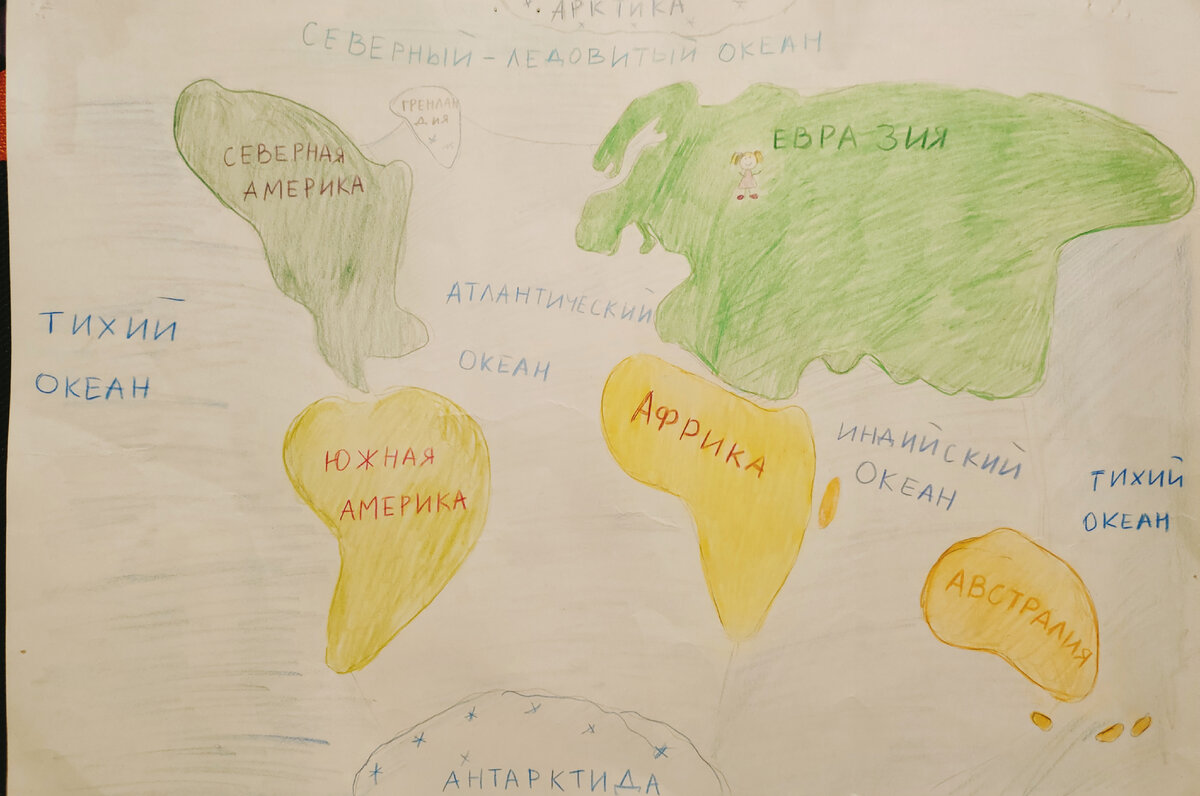 АРКТИКА
СЕВЕРНЫЙ - ЛЕДОВИТЫЙ ОКЕАН
ГРЕНЛАН
ДИЯ
СЕВЕРНАЯ
АМЕРИКА
ЕВРАЗИЯ
ТИХИЙ
ОКЕАН
АТЛАНТИЧЕСКИЙ
ОКЕАН
ЮЖНАЯ
АМЕРИКА
АФРИКА
ИНДИЙСКИЙ
ОКЕАН
ТИХИЙ
ОКЕАН
АВСТРАЛИЯ
АНТАРКТИДА